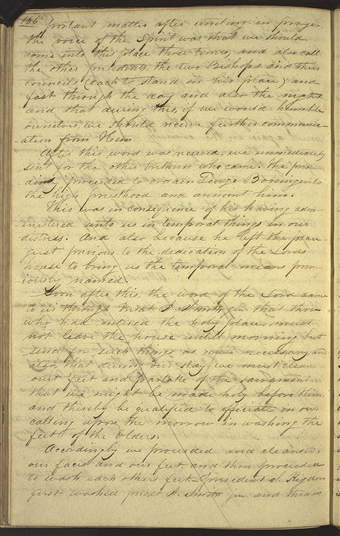 186
portant matter after uniting in prayer
the voice of the Spirit was that we should
come into this place three times, and also call
the other presidents, the two Bishops and their
councils each to stand in his place, and
fast through the day and also the night
and that during this, if we would humble
ourselves, we should receive further communic-
ation from Him.
After this word was received, we immediately
sent for the other brethren who came. The presi-
dency proceeded to ordain George Boosinger to
the high priesthood and anoint him.
This was in consequence of his having admi-
nistered unto us in temporal things in our
distress. And also because he left the place
just previous to the dedication of the Lords
house to bring us the temporal means prev-
iously named.
Soon after this, the word of the Lord came
to us through Presdt J. Smith, jr. that those
who had entered the holy place must
not leave the house until morning but
send for such things as were necessary, and
also, that during our stay, we must cleanse
our feet and partake of the sacrament
that we might be made holy before Him,
and thereby be qualified to officiate in our
calling upon the morrow in washing the
feet of the Elders.
Accordingly we proceeded and cleansed
our faces and our feet, and then proceeded
to wash each others feet. President S. Rigdon
first washed presdt J. Smith jr. and then